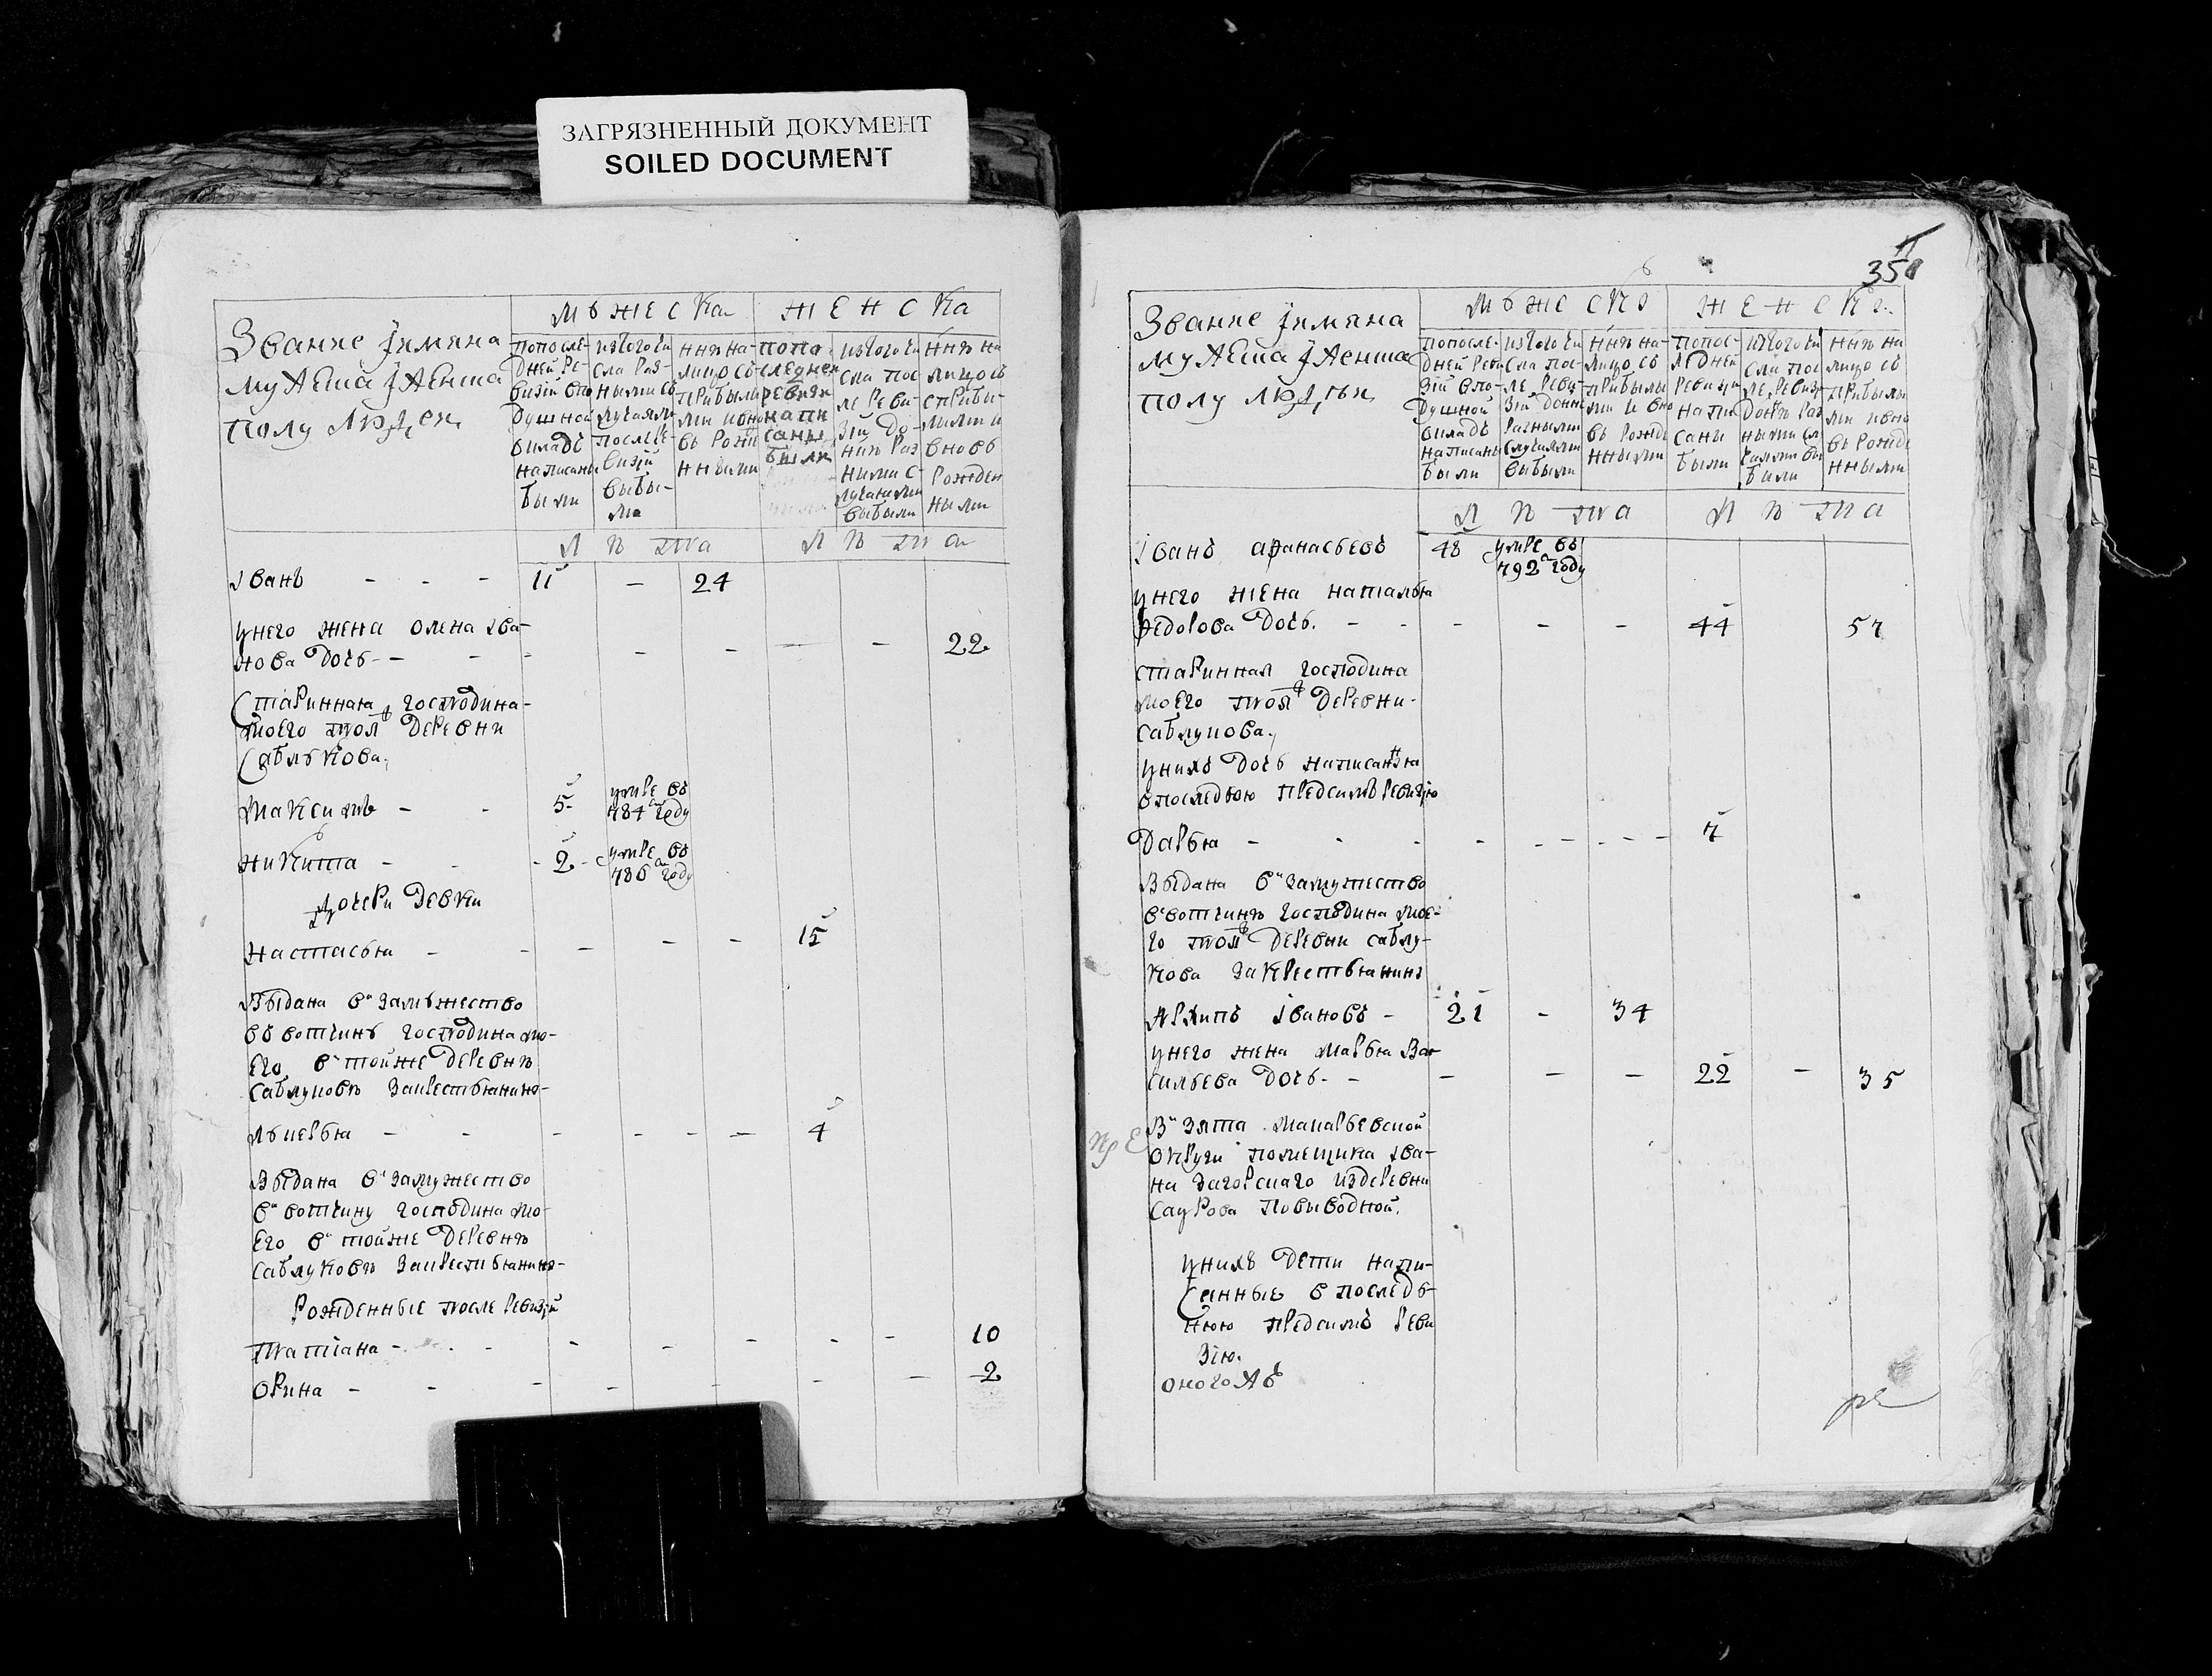 ЗАГРЯЗНЕННЫЙ ДОКУМЕНТ
SOILED DOCUMENT
Звание имяна
мужеска и женска
полу людеи
мужеска
женска
попосле-
дней ре-
визіи в по
душной
окладъ
написаны
были
изтого чи
сла раз-
ными съ
лучаями
после ре-
визіи
выбы-
ло
ннѣ на-
лицо съ
прибылы
ми ивно
вь рожде
нными
попо
следней
ревизіи
напи
саны
были
изтого чи
сла пос
ле реви-
зіи до-
ннѣ раз
ными с-
лучаями
выбыли
ннѣ на
лицо съ
сприбы-
лыми и
вновь
рожден
ными
лѣта
лѣта
іванъ - - - 11 - 24
унего жена олена іва-
нова дочь - - - - - - - 22
старинная господина
моего той ж деревни
саблукова
максимъ - - 5 умре въ
784 году
никита - - 2 умре въ
786 году
дочери девки
настасья - - - - - 15
выдана в замужество
въ вотчинѣ господина мо-
его в тойже деревнѣ
саблуковѣ закрестьянина
лукерья - - - - - - 4
выдана в замужество
в вотчину господина мо-
его в тойже деревнѣ
саблуковѣ закрестьянина
рожденные после ревизіи
татіана - - - - - - - 10
орина - - - - - - - 2
350
Звание имяна
мужеска и женска
полу людѣи
мужеска
женска
попосле-
дней реви
зіи в по-
душной
окладъ
написаны
были
изтого чи
сла пос-
ле реви-
зіи доннѣ
разными
случаями
выбыли
ннѣ на-
лицо съ
прибылы
ми и вно
вь рожде
нными
попос-
лѣдней
ревизіи
напи
саны
были
изтого чи
сла пос
ле ревизи
доннѣ раз
ными слу
чаями вы
были
ннѣ на
лицо съ
прибылы
ми ивно
вь рожде
нными
лѣта
лѣта
іванъ афанасьевъ 48 умре въ
792 году
унего жена наталья
федорова дочь. - - - - - 44 57
старинная господина
моего той ж деревни-
саблукова
унихъ дочь написанная
впоследьюю предсимъ ревизію
дарья - - - - - - - 7
выдана в замужество
ввотчинѣ господина мое-
го той ж деревни саблу-
кова закрестьянина
архипъ івановъ - 21 - 34
унего жена марья ва-
сильева дочь - - - - - 22 - 35
взята макарьевской
округи помещика іва-
на загорскаго издеревни
саурова повыводной.
унихъ дети напи-
санные в последь-
нюю предсимъ реви
зію.
оногожъ